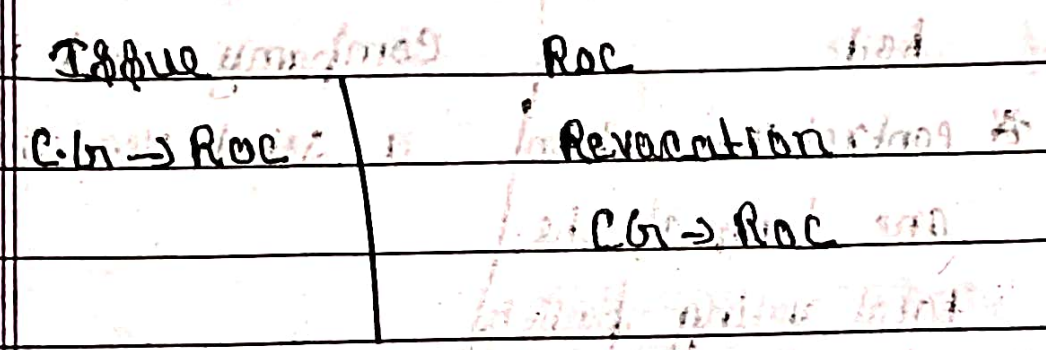 Issue ROC
C.G → ROC Revocation
CG → ROC